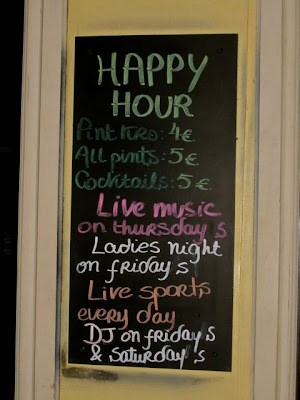 HAPPY
HOUR
Pint kro: 4€
All pints: 5€
Cocktails: 5€
Live music
on thursday s
Ladies night
on friday s
Live sports
every day
DJ on friday s
& saturday s